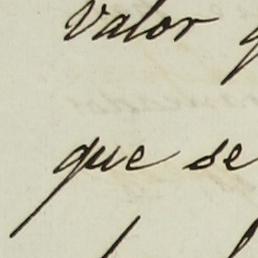 valor
que se